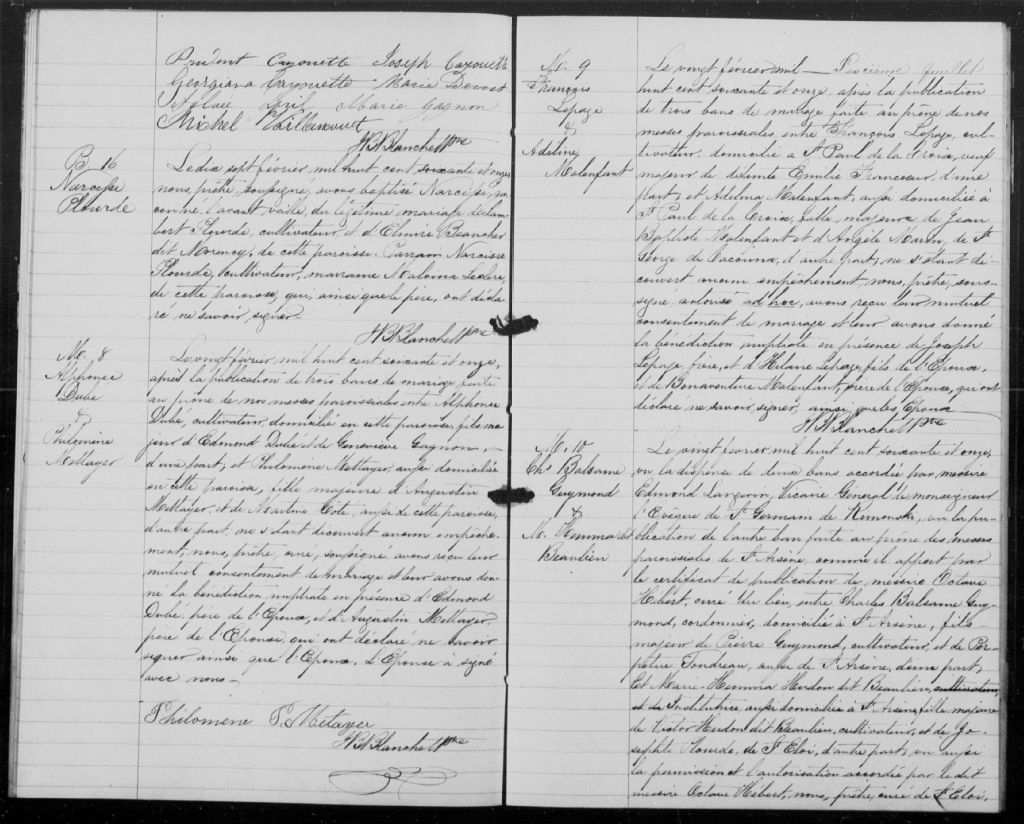 Prudent Cayouette Joseph Cayouette
Georgiana Cayouette Marie
Marie Gagnon
Michel Vaillancourt
N N Blanchet Ptre
B. 16
Narcisse
Plourde
Le dix sept février, mil huit cent soixante et onze
nous, prêtre, soussigné, avons baptisé Narcisse,
né l'avant veille, du légitime mariage de Lam-
bert Plourde, cultivateur, et d'Elmire Beaucher
dit Morency, de cette paroisse. Parrain Narcisse
Plourde, cultivateur, marraine Malvina Leclerc,
de cette paroisse, qui, ainsi que le père, ont décla-
ré ne savoir signer
N N Blanchet Ptre
M. 8
Alphonse
Dubé
&
Philomène
Mettayer
Le vingt février, mil huit cent soixante et onze,
après la publication de trois bans de mariage faite
au prône de nos messes paroissiales entre Alphonse
Dubé, cultivateur, domicilié en cette paroisse, fils ma-
jeur d'Edmond Dubé et de Geneviève Gagnon,
d'une part, et Philomène Mettayer, aussi domiciliée
en cette paroisse, fille majeure d'Augustin
Mettayer, et de Marline Côté, aussi de cette paroisse,
d'autre part, ne s'étant découvert aucun empêche-
ment, nous, prêtre, curé, soussigné avons reçu leur
mutuel consentement de mariage et leur avons don-
né la bénédiction nuptiale en présence d'Edmond
Dubé, père de l'Epoux, et d'Augustin Mettayer,
père de l'Epouse, qui ont déclaré ne savoir
signer ainsi que l'Epoux. L'Epouse a signé
avec nous
Philomene P. Metayer
N N Blanchet Ptre
M. 9
François
Lepage
&
Adeline
Malenfant
Le vingt février mil
huit cent soixante et onze, après la publication
de trois bans de mariage faite au prône de nos
messes paroissiales entre François Lepage, cul-
tivateur, domicilié à St Paul de la Croix, veuf
majeur de défunte Emilie Francoeur, d'une
part, et Adelina Malenfant, aussi domiciliée à
St Paul de la Croix, fille majeure de Jean
Baptiste Malenfant et d'Angèle Morin, de St
George de Cacouna, d'autre part, ne s'étant dé-
couvert aucun empêchement, nous, prêtre, sous-
signé, autorisé ad hoc, avons reçu leur mutuel
consentement de mariage et leur avons donné
la bénédiction nuptiale en présence de Joseph
Lepage, frère, et d'Hilaire Lepage, fils de l'Epoux,
et de Bonaventure Malenfant, frère de l'Epouse, qui ont
déclaré ne savoir signer, ainsi que les Epoux
N N Blanchet Ptre
M. 10
Chs Balsame
Guymond
&
M. Hemma dit
Beaulieu
Le vingt février mil huit cent soixante et onze,
vu la dispense de deux bans accordée par messire
Edmond Langevin, Vicaire Général de monseigneur
l'Evêque de St Germain de Rimouski, vu la pu-
blication de l'autre ban faite au prône des messes
paroissiales de St Arsène, comme il appert par
le certificat de publication de messire Octave
Hébert, curé du lieu, entre Charles Balsame Guy-
mond, cordonnier, domicilié à St Arsène, fils
majeur de Pierre Guymond, cultivateur, et de Per-
pétue Fondreau, aussi de St Arsène, d'une part,
Et Marie-Hemma Hudon dit Beaulieu, cultivateur,
Institutrice, aussi domiciliée à St Arsène, fille majeure
de Victor Hudon dit Beaulieu, cultivateur, et de Jo-
sephte Plourde, de St Eloi, d'autre part, vu aussi
la permission et l'autorisation accordée par le dit
messire Octave Hébert, nous, prêtre, curé de St Eloi,